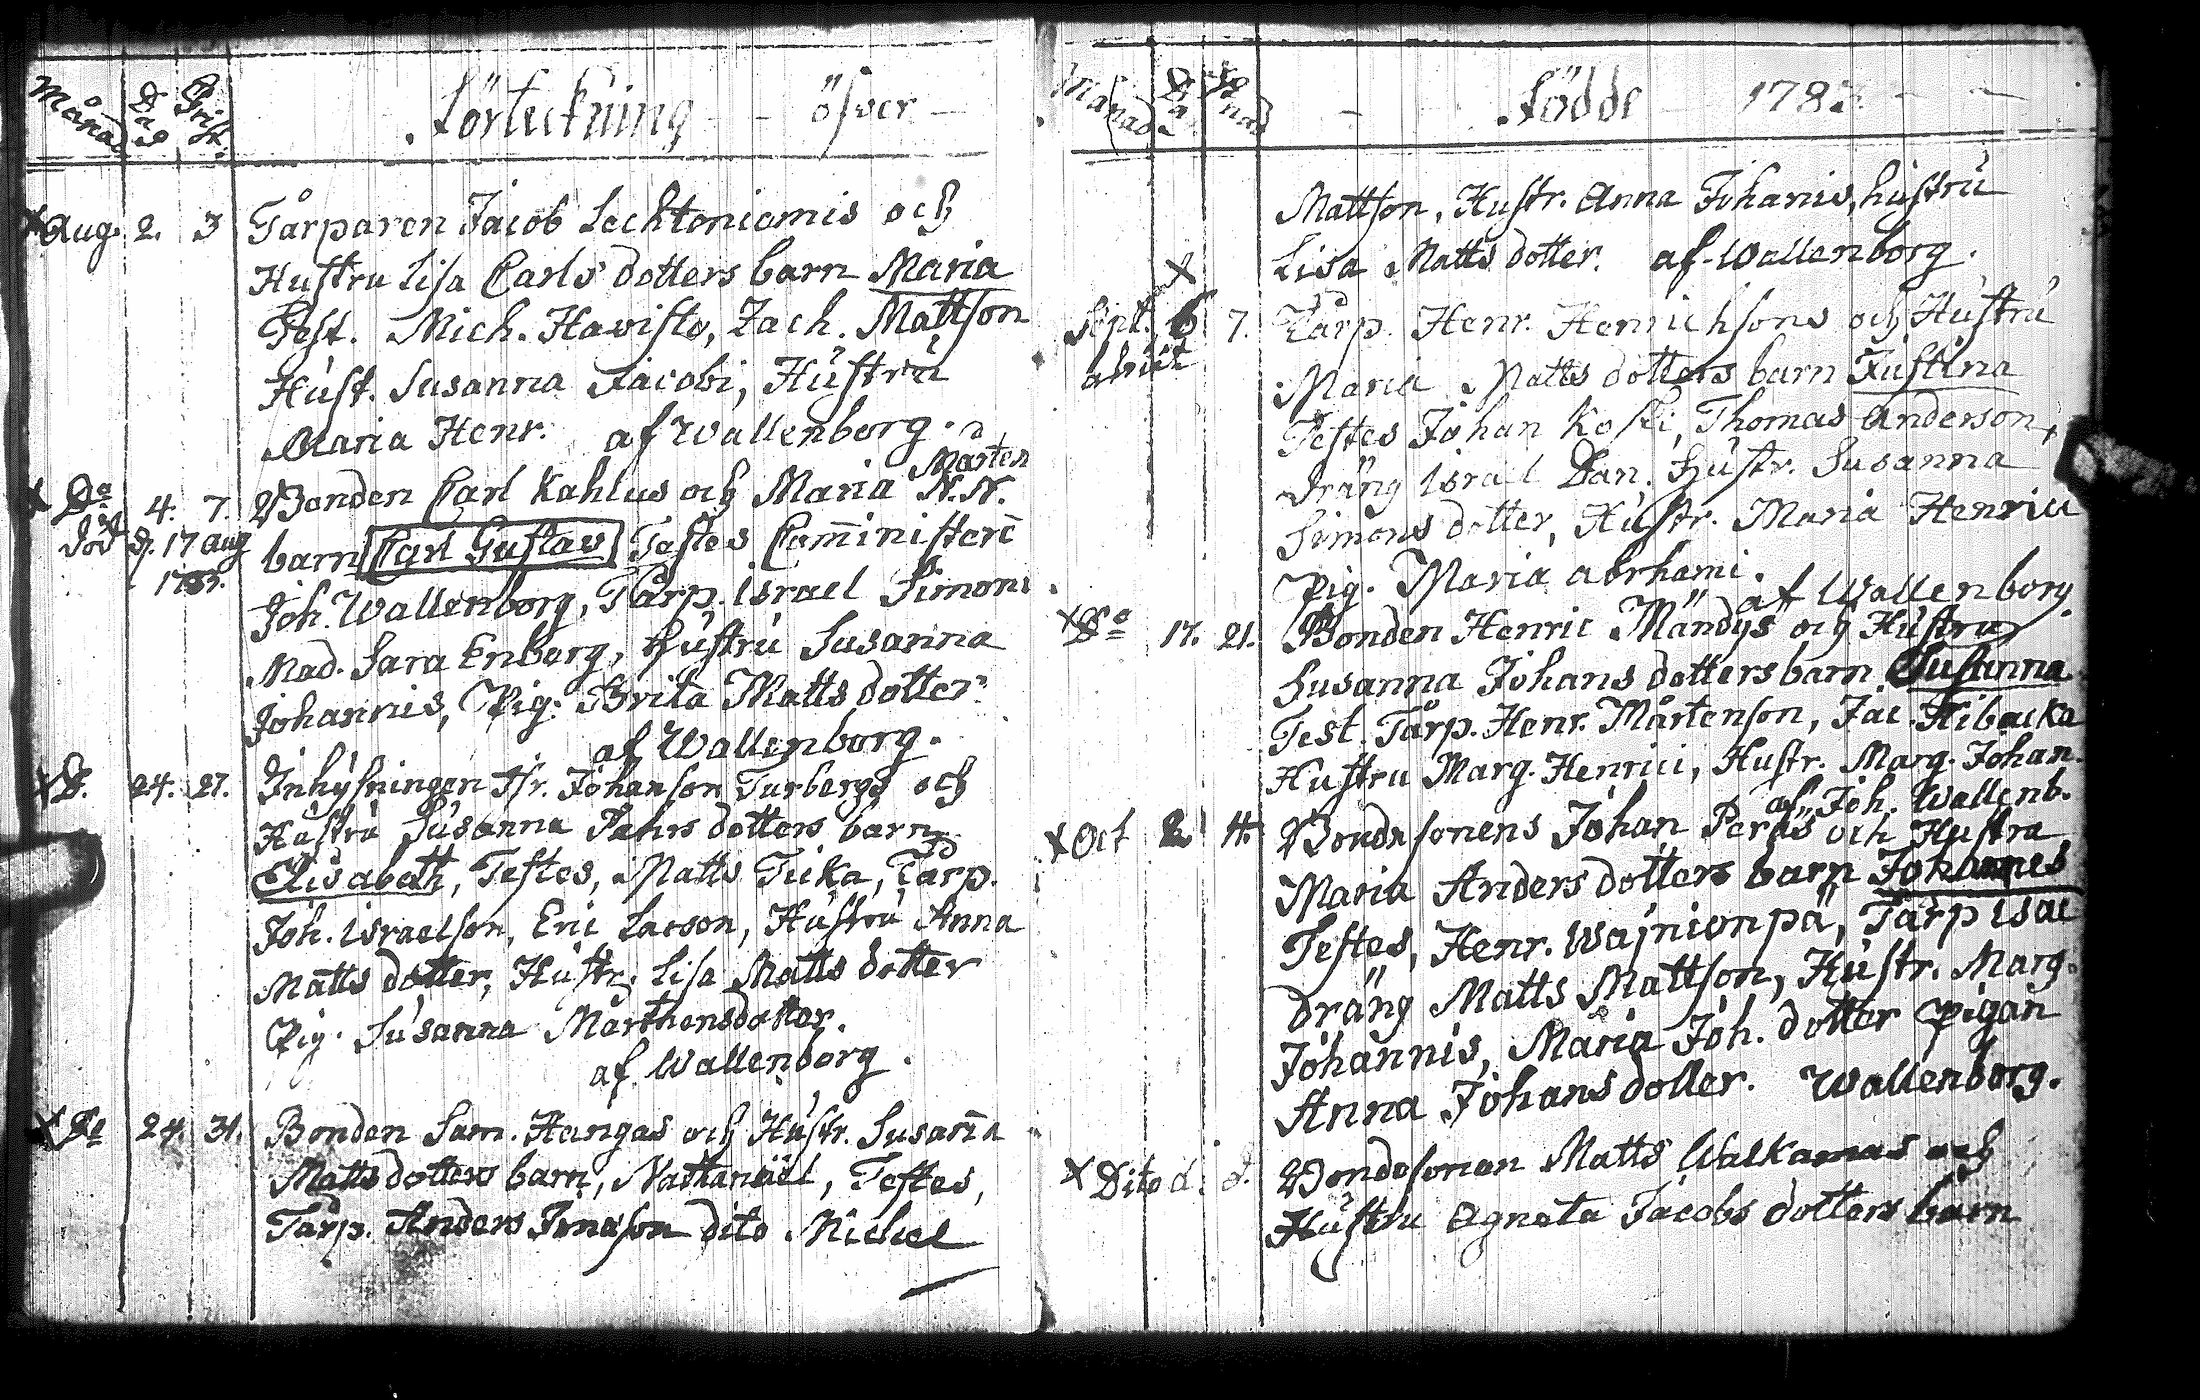 Månad Dag Christ. Förteckning öfver
Aug. 2. 3 Tårparen Jacob Lechtoniomis och
Hustru Lisa Carls dotters barn Maria
Test. Mich. Havisto, Zach. Mattson
Hust. Susanna Jacobi, Hustru
Maria Henr. af Wallenborg.
Mårten
Do 4. 7. Bonden Carl Kahlus och Maria N.N.
död d. 17 Aug barn Carl Gustav Testes Comministern
Joh. Wallenborg, Tårp. Israel Simons
Mad. Sara Enberg, Hustru Susanna
Johannis, Pig. Brita Matts dotter
af Wallenborg.
D. 24. 27. Inhysningen Johanson Turbergs och
Hustru Susanna dotters barn
Elisabeth, Testes, Matts Tuka, Tårp.
Joh. Israelson, Eric Larson, Hustru Anna
Matts dotter, Hustr. Lisa Matts dotter
Pig. Susanna Mårthensdotter.
af Wallenborg.
Do 24. 31. Bonden Sam. Hangas och Hustr. Susanna
Matts dotters barn, Nathanaël, Testes,
Tårp. Anders dito Michel
Månad Dag Födde 178
Mattson, Hustr. Anna Johanis, hustru
Lisa Matts dotter. af Wallenborg.
Sept. 6 7. Tårp. Henr. Henrichsons och Hustru
Maria Matts dotters barn Justina
Testes Johan Koski, Thomas Anderson,
dräng Israel Dan. Hustr. Susanna
Simons dotter, Hustr. Maria Henrici
Pig. Maria Abrhami.
af Wallenborg.
Do 17. 21. Bonden Henric Mändys och Hustru
Susanna Johans dotters barn Susanna
Test. Tårp. Henr. Mårtenson, Jac. Hibacka
Hustru Marg. Henrici, Hustr. Marg. Johan.
af Joh. Wallenb.
Oct 2. 4. Bondesonens Johan Peräs och Hustru
Maria Anders dotters barn Johannes
Testes, Henr. Wajnionpä, Tårp Isac
dräng Matts Mattson, Hustr. Marg.
Johannis, Maria Joh. dotter pigan
Anna Johans dotter. Wallenborg.
Dito d. d. Bondesonen Matts Walkamas och
Hustru Agneta Jacobs dotters barn